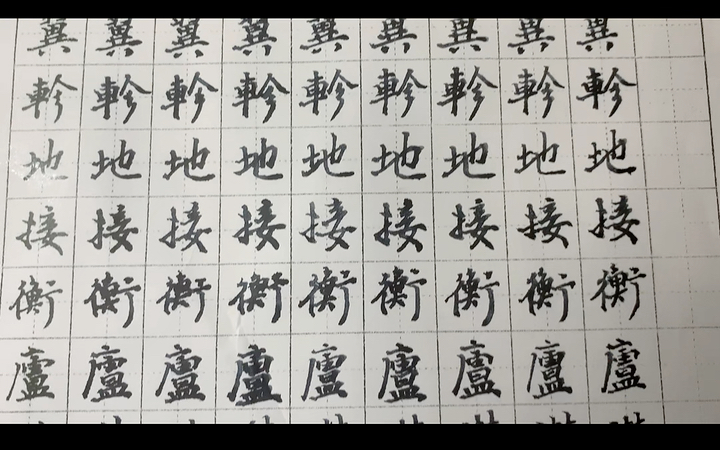 翼翼翼翼翼翼翼翼翼
軫軫軫軫軫軫軫軫軫
地地地地地地地地地
接接接接接接接接接
衡衡衡衡衡衡衡衡衡
廬廬廬廬廬廬廬廬廬